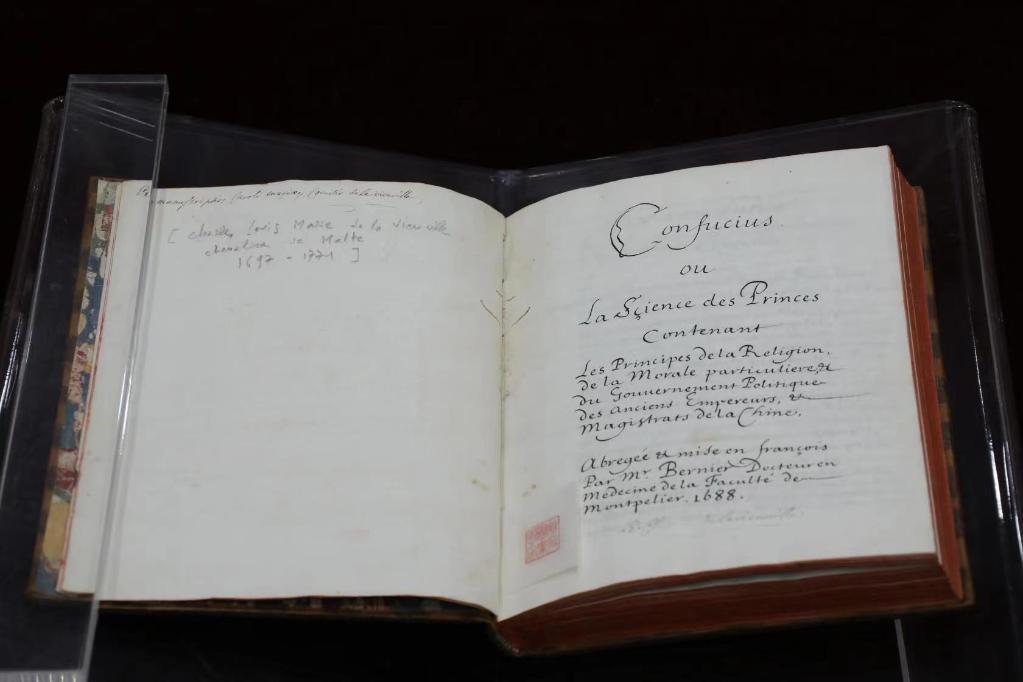 manuscriptis Caroli mariæ Comitis de lavieuville.
[ Charles Louis Marie de la Vieuville
chevalier de Malte
1697 - 1771 ]
Confucius
ou
La Sçience des Princes
Contenant
Les Principes de la Religion,
de la Morale particuliere, &
du Gouvernement Politique
des anciens Empereurs, &
Magistrats de la Chine.
Abregée & mise en françois
Par Mr. Bernier Docteur en
Medecine de la Faculté de
Montpelier. 1688.